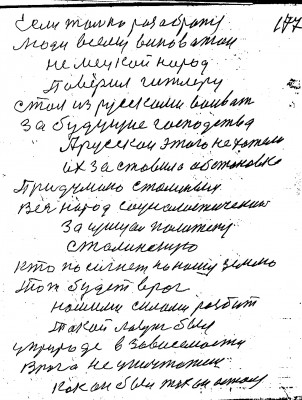 Если только разобрать
177
Люди всему виноватой
не мецкой народ
Поверил гитлеру
стал из русскими воиват
За будущие господства
А русской этого не хотели
их заставила обстановка
Придумано сталиным
Век народ социалистический
За щищал политику
сталинскую
кто посягнет на нашу землю
тот будет враг
нашими силами разбит
Такой лозунг был
у природе в зависемости
Врага не уничтожит
как он был так он остал